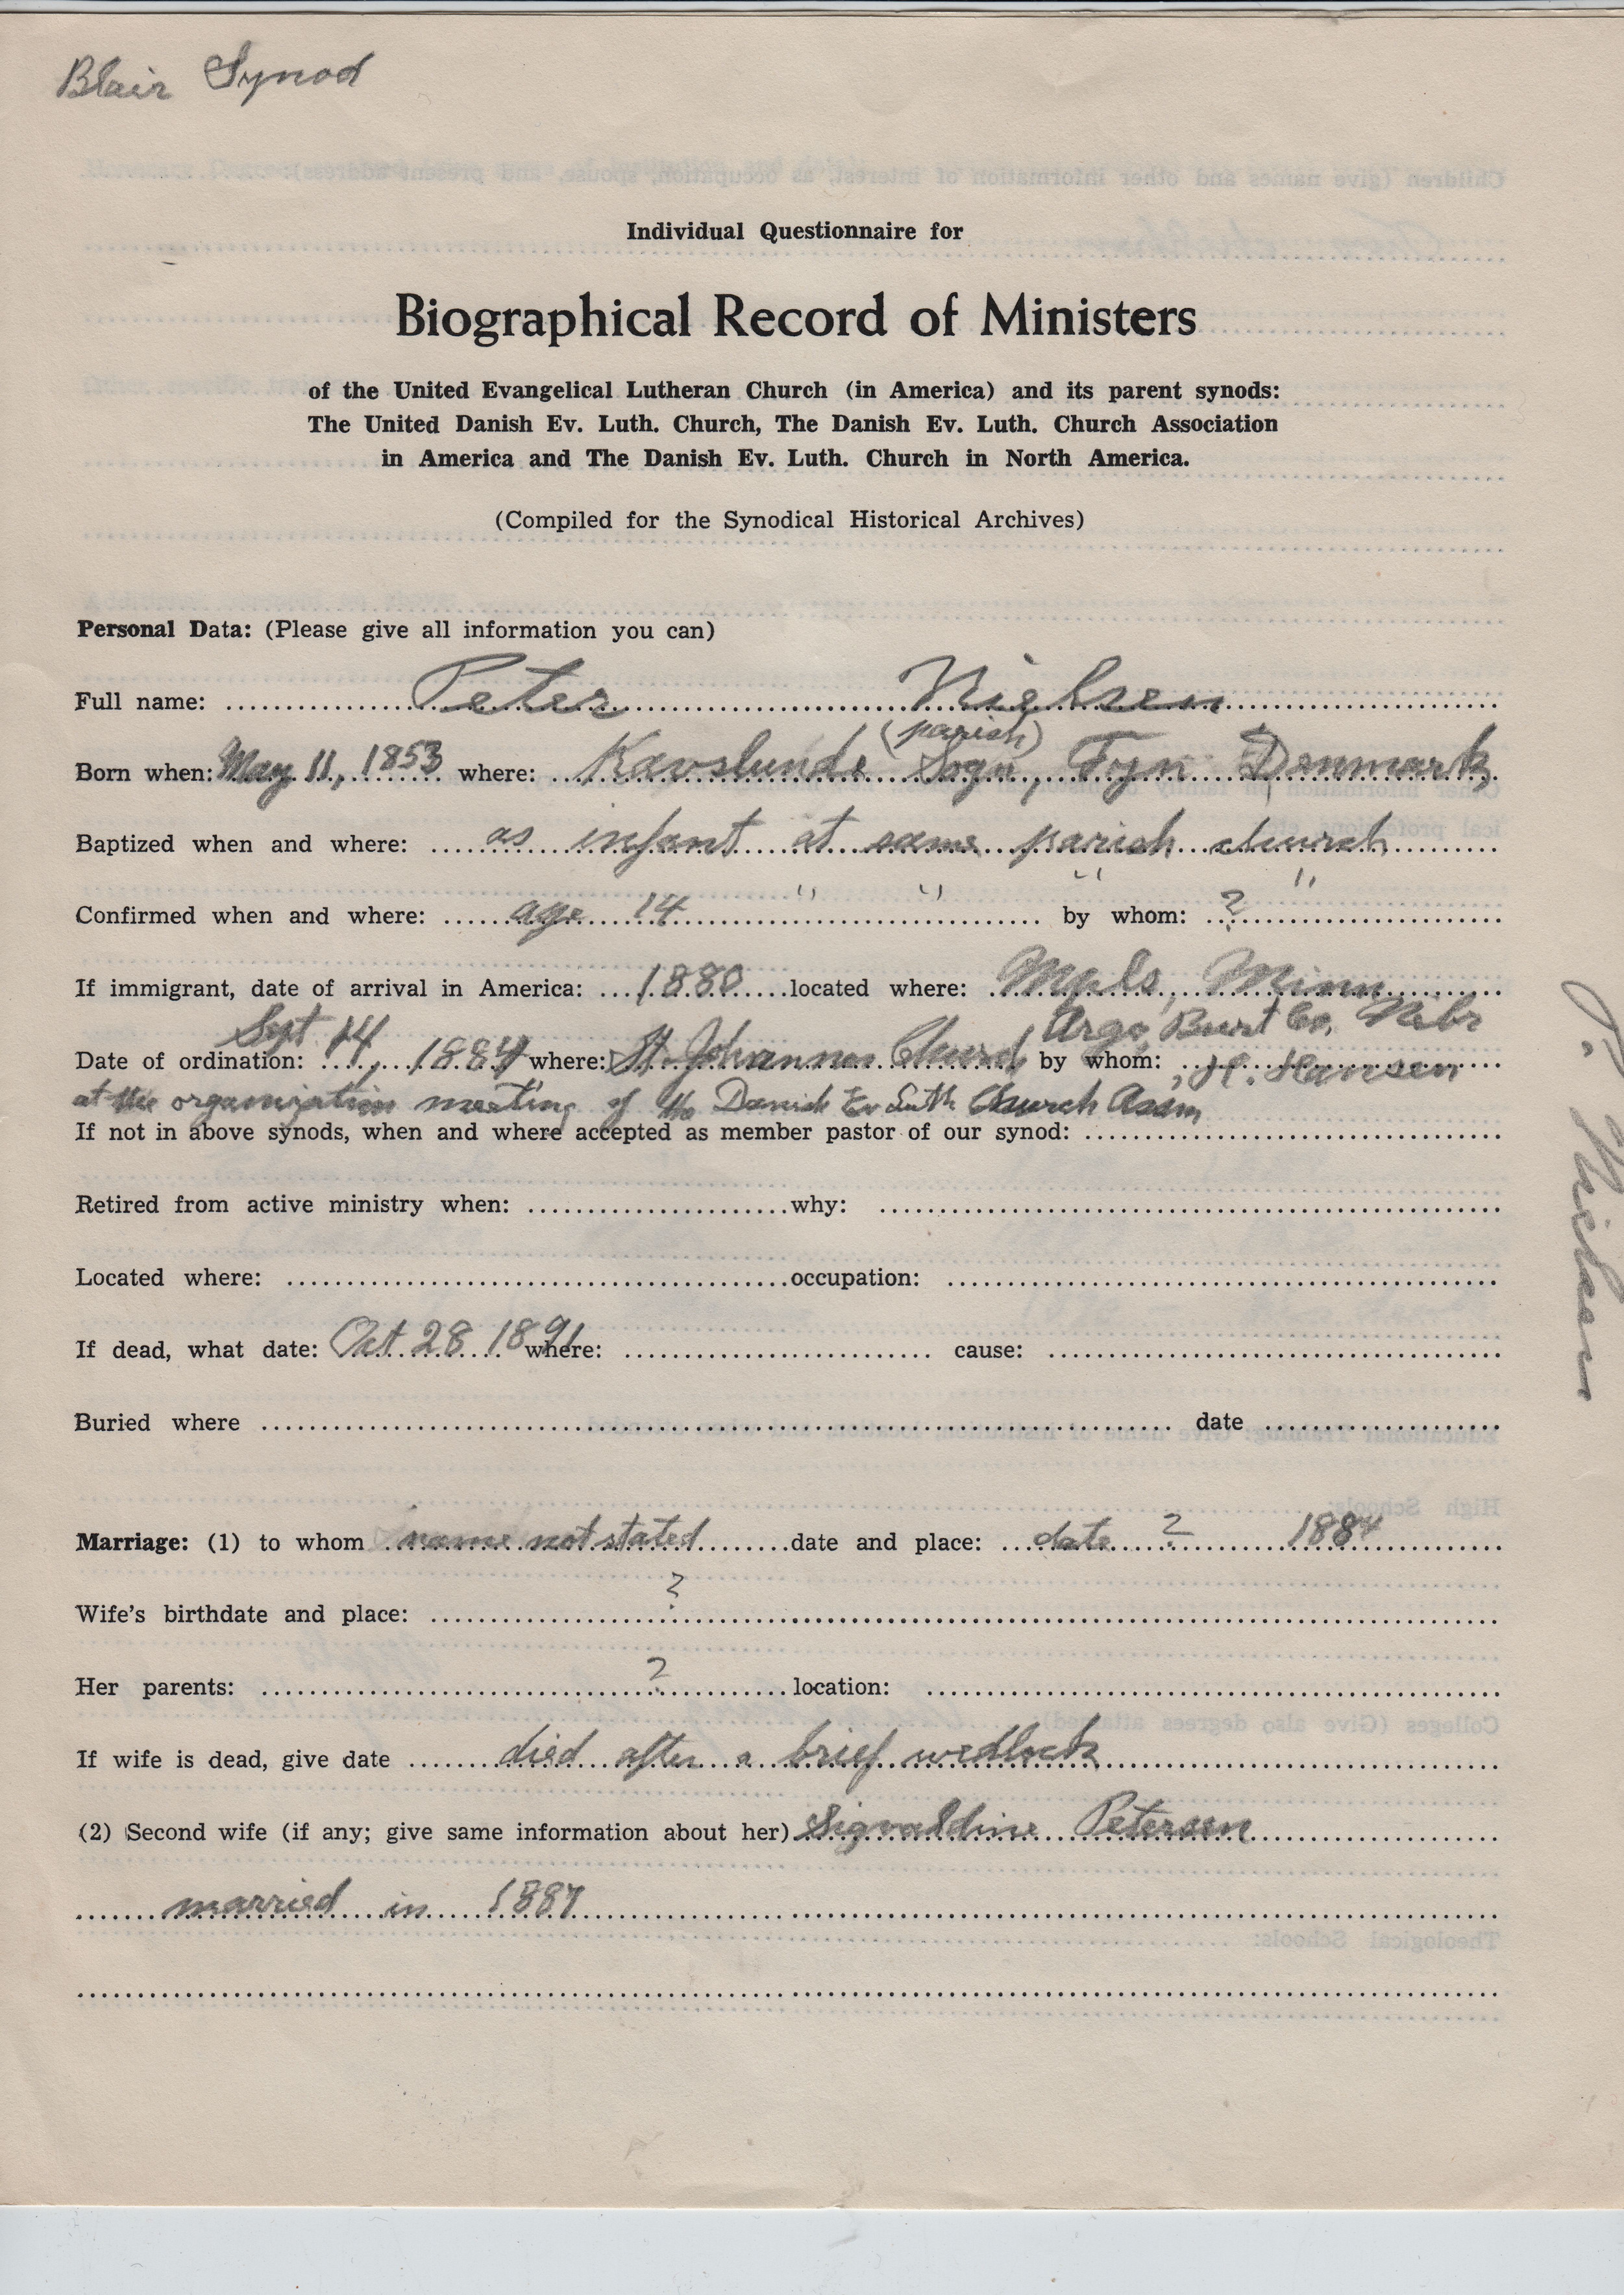 Blair Synod
Individual Questionnaire for
Biographical Record of Ministers
of the United Evangelical Lutheran Church (in America) and its parent synods:
The United Danish Ev. Luth. Church, The Danish Ev. Luth. Church Association
in America and The Danish Ev. Luth. Church in North America.
(Compiled for the Synodical Historical Archives)
Personal Data: (Please give all information you can)
Full name: Peter Nielsen
(parish)
Born when: May 11, 1853 where: Kavslunde Sogn, Fyn Denmark
Baptized when and where: as infant at same parish church
" " " "
Confirmed when and where: age 14 by whom: ?
If immigrant, date of arrival in America: 1880 located where: Mpls, Minn
Sept 14, Argo, Burt Co, Nebr
Date of ordination: 1884 where: St. Johannes Church by whom: , H. Hansen
at the organization meeting of the Danish Ev Luth Church Assn
If not in above synods, when and where accepted as member pastor of our synod:
Retired from active ministry when: why:
Located where: occupation:
If dead, what date: Oct 28 1891 where: cause:
Buried where date
Marriage: (1) to whom name not stated date and place: date ? 1884
Wife's birthdate and place: ?
Her parents: ? location:
If wife is dead, give date died after a brief wedlock
(2) Second wife (if any; give same information about her) Sigvaldine Petersen
married in 1887
P. Nielsen